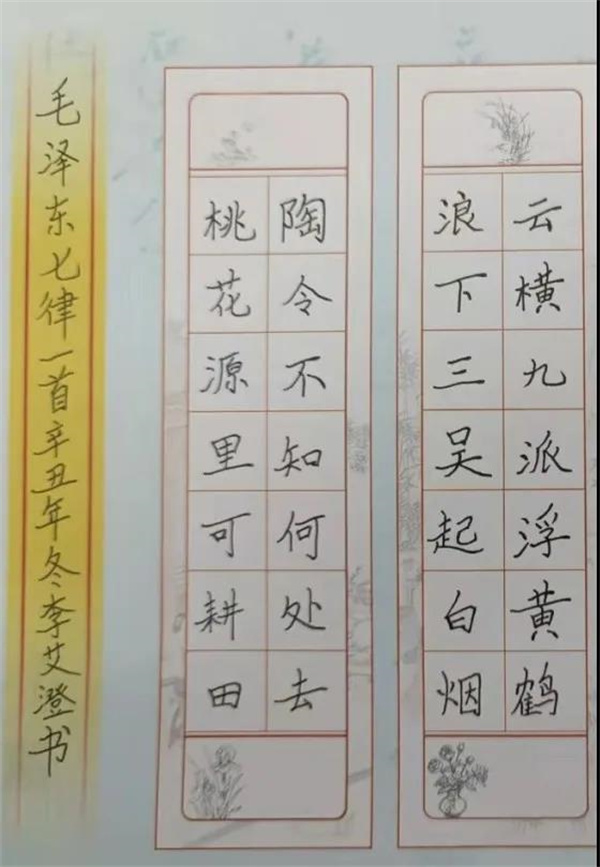 云横九派浮黄鹤
浪下三吴起白烟
陶令不知何处去
桃花源里可耕田
毛泽东七律一首辛丑年冬李艾澄书